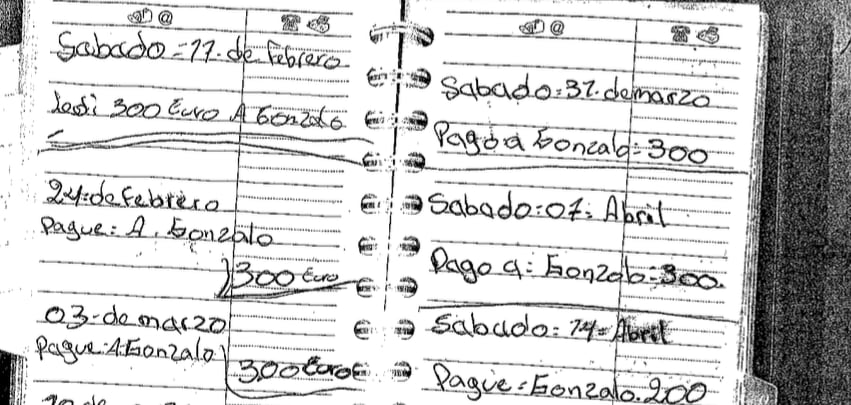 Sabado=11.de febrero
le di 300 Euro A Gonzalo
24:de Febrero
Pague: A. Gonzalo
300 Euro
03-de marzo
Pague:A.Gonzalo
300 Euro
Sabado:31.de marzo
Pago a Gonzalo:300
Sabado:07: Abril
Pago a: Gonzalo:300.
Sabado: 14= Abril
Pague:Gonzalo.200